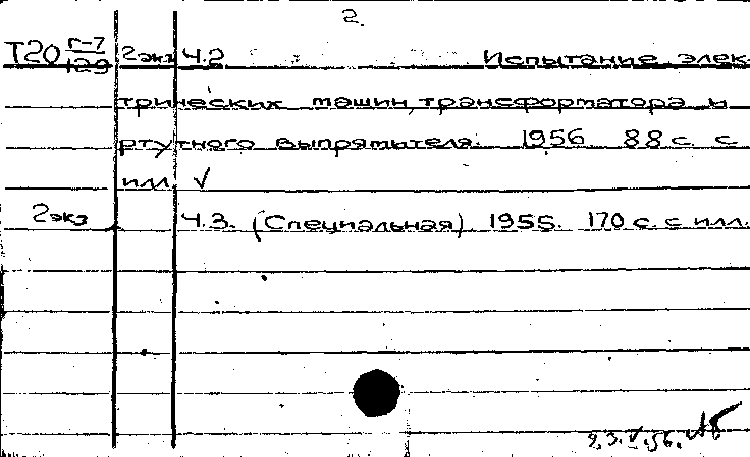 2.
Т20 г-7/129 2экз Ч.2 Испытание элек-
трических машин, трансформатора и
ртутного выпрямителя. 1956 88 с. с
илл. √
2экз Ч.3. (Специальная) 1955. 170 с. с илл.
23.V.56.